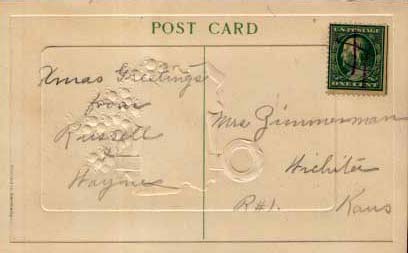 POST CARD
U.S. POSTAGE
ONE CENT
Xmas Greetings
from
Russell
&
Wayne
Mrs Zimmerman
Wichita
R#1. Kans